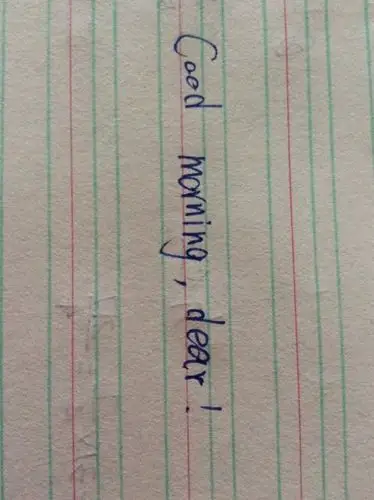 Good morning, dear!